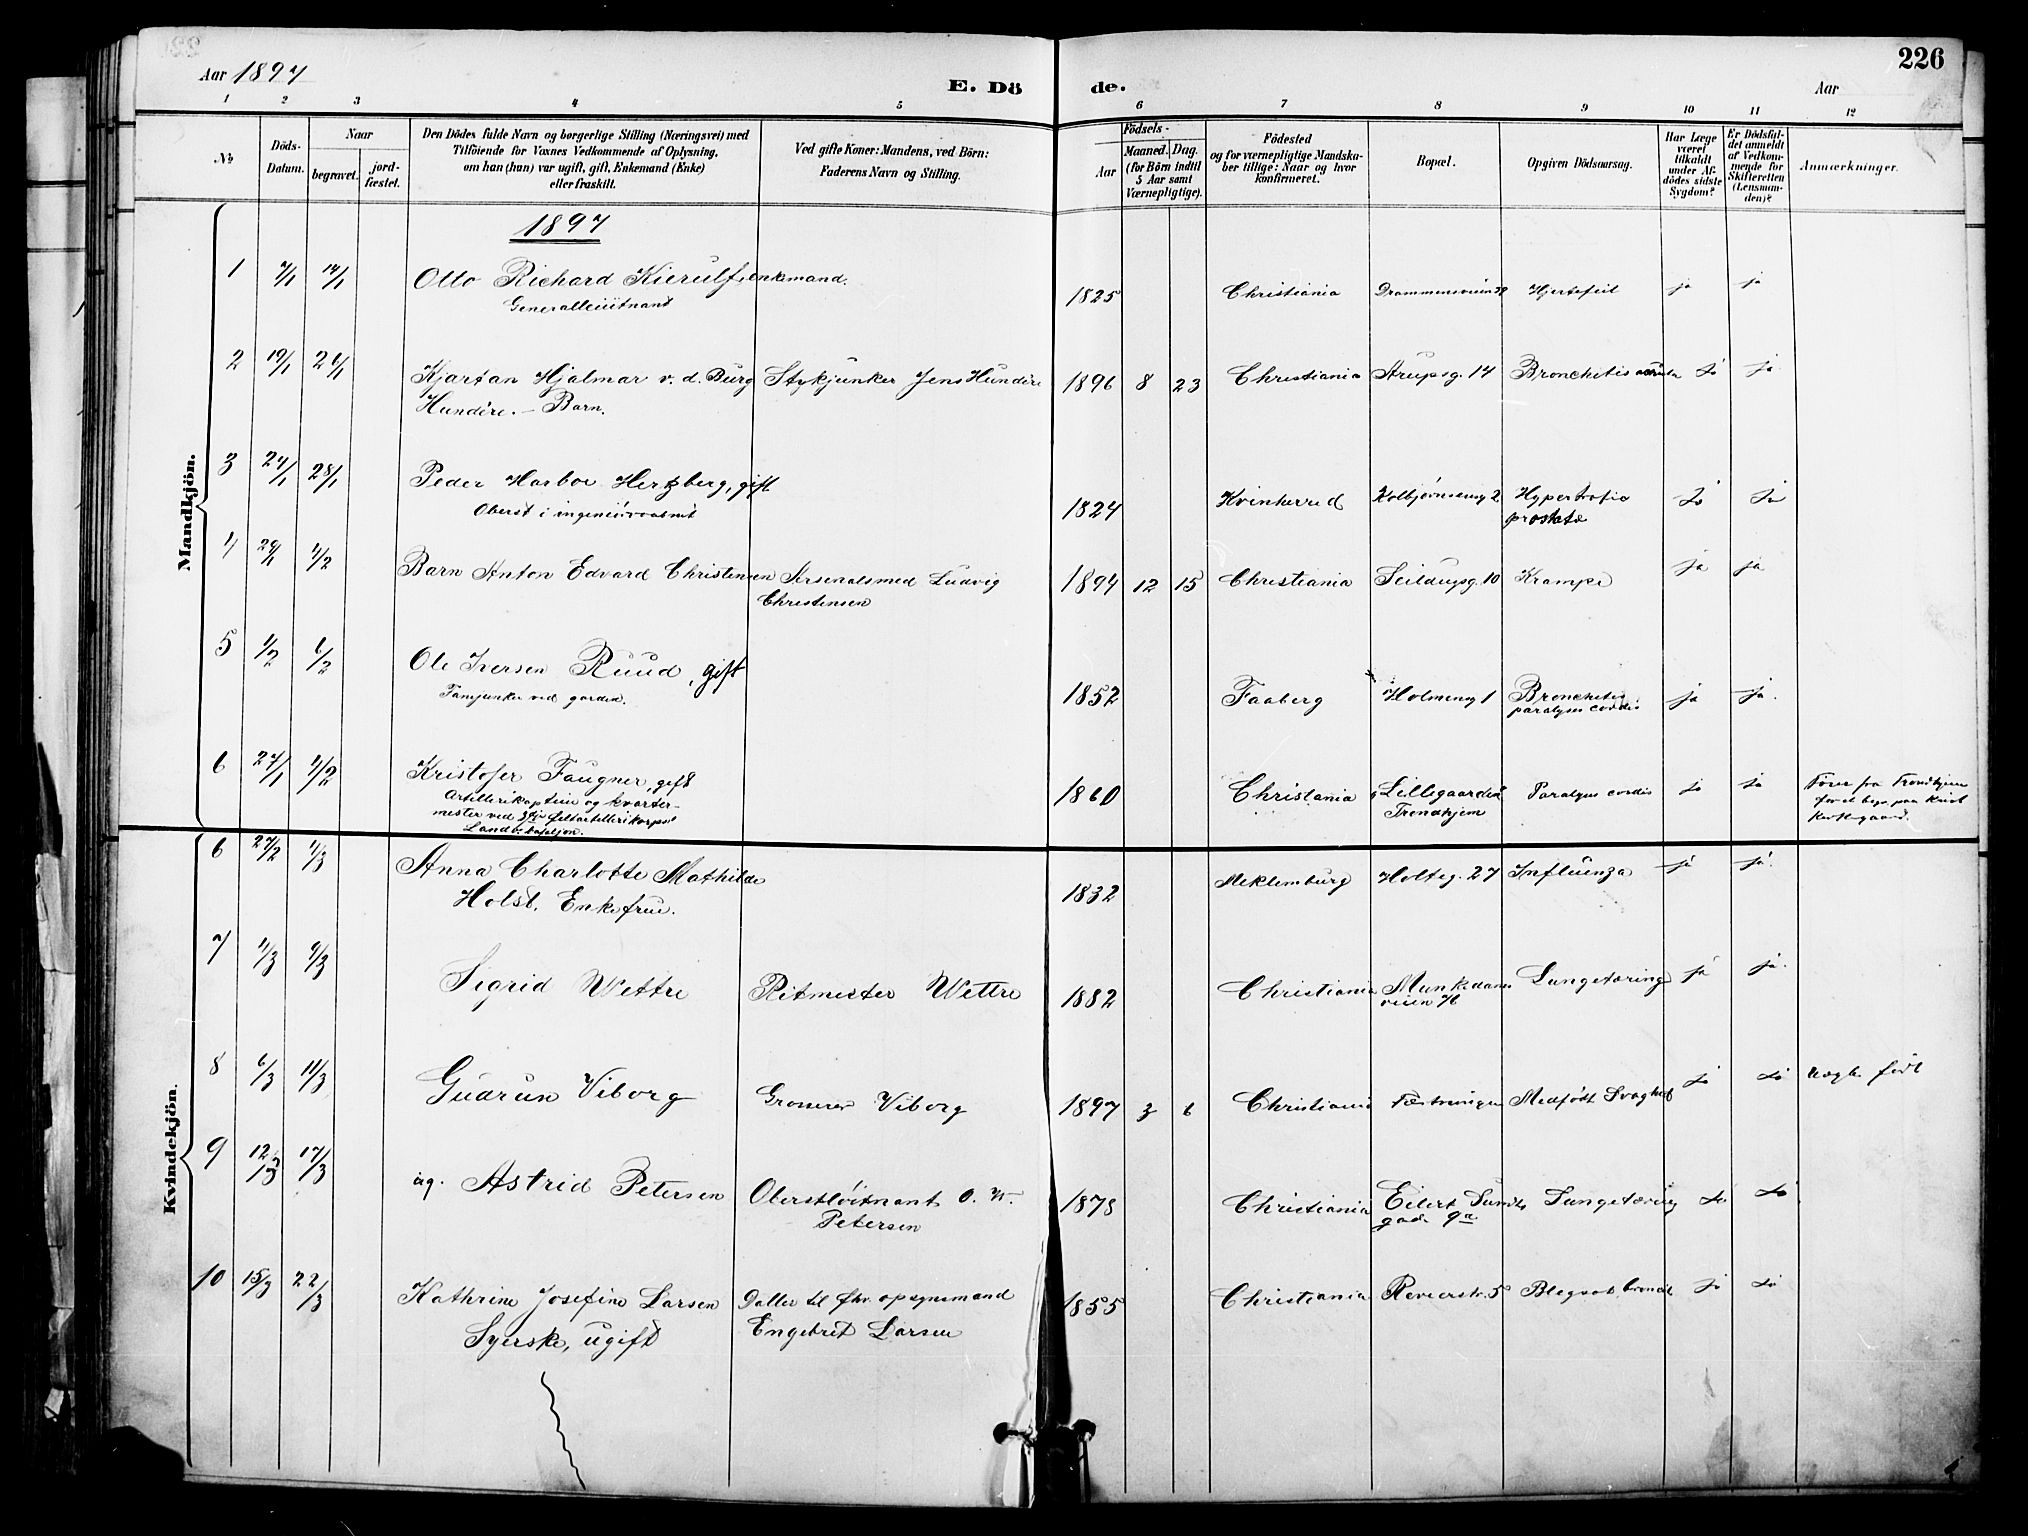 226
Aar 1897
E. Dö de.
Aar
1 2 3 4 5 6 7 8 9 10 11 12
No
Döds-Datum.
Naar
begravet.
jord-fæstet.
Den Dödes fulde Navn og borgerlige Stilling (Næringsvei) med
Tilföiende for Voxnes Vedkommende af Oplysning,
om han (hun) var ugift, gift, Enkemand (Enke)
eller fraskilt.
Ved gifte Koner: Mandens, ved Börn:
Faderens Navn og Stilling.
Födsels-
Aar
Maaned. Dag.
(for Börn indtil
5 Aar samt
Værnepligtige).
Födested
og for værnepligtige Mandska-
ber tillige: Naar og hvor
konfirmeret.
Bopæl.
Opgiven Dödsaarsag.
Har Læge
været
tilkaldt
under Af-
dödes sidste
Sygdom?
Er Dödsfal-
det anmeldt
af Vedkom-
mende for
Skifteretten
(Lensman-
den)?
Anmærkninger.
Mandkjön.
1897
1 7/1 14/1 Otto Richard Kierulf, enkemand. 1825 Christiania Drammensveien Hjertefeil ja ja
Generalleiitnant
2 19/1 26/1 Kjartan Hjalmar v. d. Burg Stykjunker Jens Hundére 1896 8 23 Christiania Strupsg. 14 Bronchitis acuta Ja ja
Hundére. - Barn.
3 24/1 28/1 Peder Harboe Hertzberg, gift 1824 Kvinherred Kolbjørnseng 2 Hypertrofia Ja Ja
Oberst i prostatæ
4 29/1 4/2 Barn Anton Edvard Christensen Arsenalsmed Ludvig 1894 12 15 Christiania Seildugsg. 10 Krampe ja ja
Christensen
5 1/2 6/2 Ole Iversen Ruud, gift 1852 Faaberg Holmeng 1 Bronchitis ja ja.
Fanejunker ved garden. paralysis cordis
6 27/1 4/2 Kristofer Faugner, gift 1860 Christiania Lillegaarden Paralysis cordis Ja Ja Føres fra Trondhjem
Artillerikaptein og kvarter- Trondhjem
mester ved 3die feltartillerikorps'
Landv. bataljon.
Kvindekjön.
6 27/2 4/3 Anna Charlotte Mathilde 1832 Meklemburg Holteg. 27 Influenza ja ja.
Holst. Enkefrue.
7 4/3 9/3 Sigrid Wettre Ritmester Wettre 1882 Christiania Munkedams Lungetæring ja ja.
veien
8 6/3 11/3 Gudrun Viborg Viborg 1897 3 6 Christiania Fæstningen Medfödt Svaghed Ja Ja født
9 12/3 17/3 ug. Astrid Petersen Oberstløitnant O. N. 1878 Christiania Eilert Sundts Lungetæring Ja Ja
Petersen gade 9a
10 15/3 22/3 Kathrine Josefine Larsen Datter til fhv. opsynsmand 1855 Christiania Revierstr. 5 Blegsot, Ja Ja
Syerske, ugift Engebret Larsen